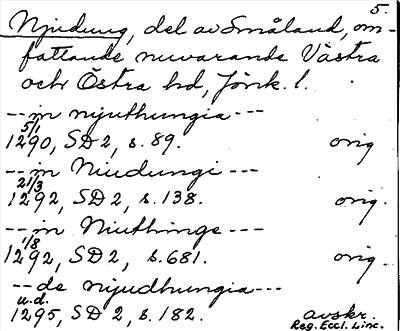 5.
Njudung, del av Småland, om-
fattande nuvarande Västra
och Östra hd, Jönk. l.
--- in njuthungia ---
5/1
1290, SD 2, s. 89. orig
--- in Niudungi ---
21/3
1292, SD 2, s. 138. orig.
--- in Niuthinge ---
1/8
1292, SD 2, s. 681. orig.
--- de njudhungia ---
u.d.
1295, SD 2, s. 182. avskr.
Reg. Eccl. Linc.